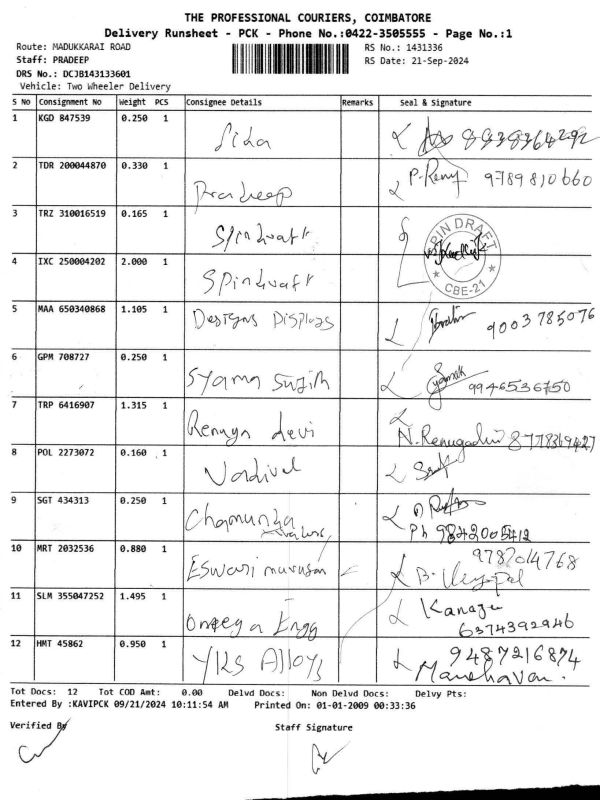 THE PROFESSIONAL COURIERS, COIMBATORE
Delivery Runsheet - PCK - Phone No.:0422-3505555 - Page No.:1
Route: MADUKKARAI ROAD RS No.: 1431336
Staff: PRADEEP RS Date: 21-Sep-2024
DRS No.: DCJB143133601
Vehicle: Two Wheeler Delivery
S No Consignment No Weight PCS Consignee Details Remarks Seal & Signature
1 KGD 847539 0.250 1
2 TDR 200044870 0.330 1 Pradeep P. Reny 9789810660
3 TRZ 310016519 0.165 1 Spindraft SPIN DRAFT
4 IXC 250004202 2.000 1 Spindraft CBE-21
5 MAA 650340868 1.105 1 Designs Displays Ibrahim 9003785076
6 GPM 708727 0.250 1 Syama Sujith 9946536750
7 TRP 6416907 1.315 1 Renuga devi N. Renugadevi 8778369427
8 POL 2273072 0.160 1 Vadivel
9 SGT 434313 0.250 1 Chamunda Ph 9842005412
10 MRT 2032536 0.880 1 Eswari murugan B. Venugopal 9787014768
11 SLM 355047252 1.495 1 Omega Engg Kanagu 6374392946
12 HMT 45862 0.950 1 YKS Alloys 9487216874
Manohavan.
Tot Docs: 12 Tot COD Amt: 0.00 Delvd Docs: Non Delvd Docs: Delvy Pts:
Entered By :KAVIPCK 09/21/2024 10:11:54 AM Printed On: 01-01-2009 00:33:36
Verified By Staff Signature